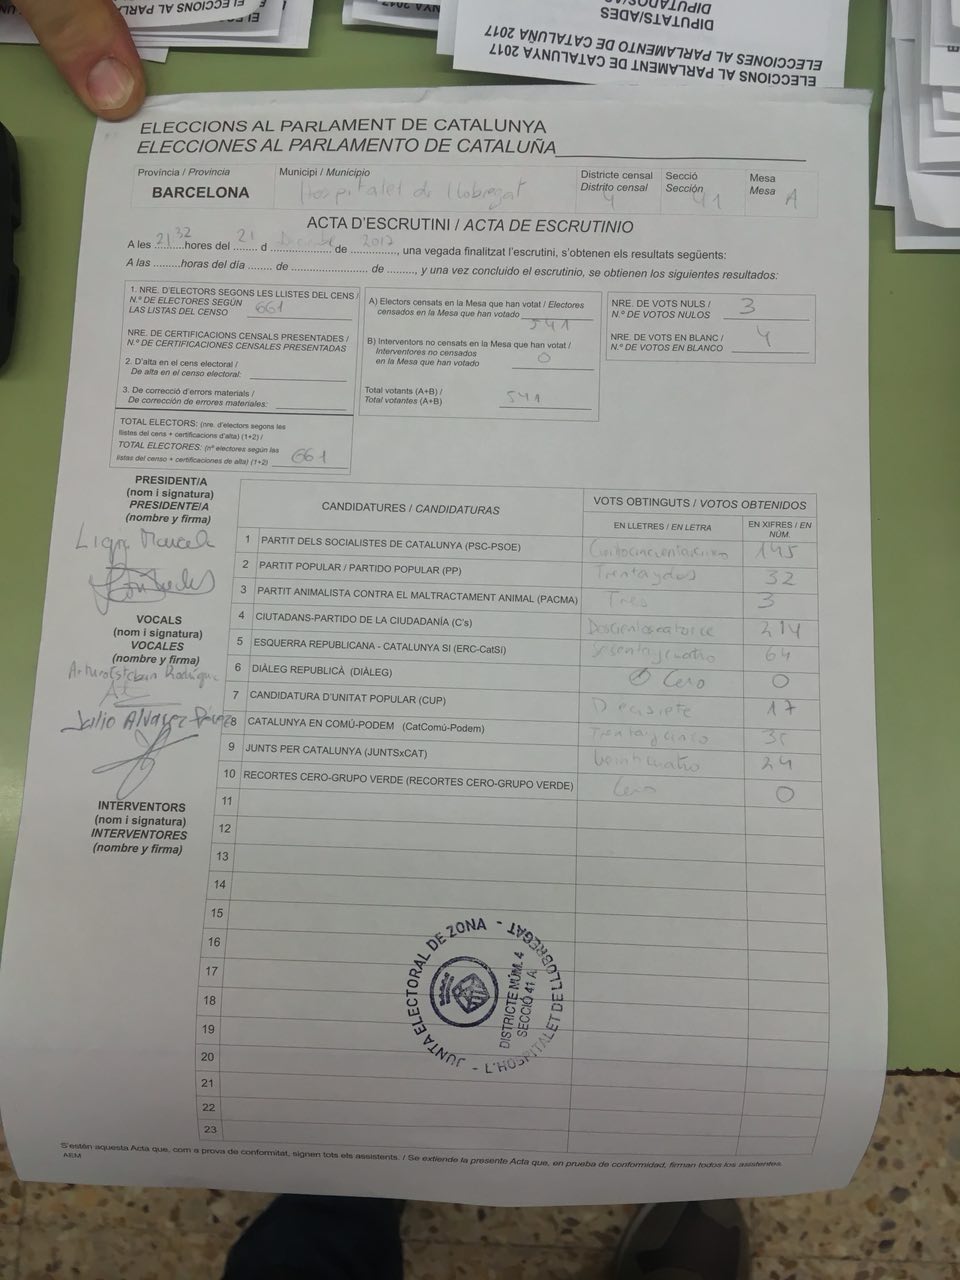 ELECCIONS AL PARLAMENT DE CATALUNYA
ELECCIONES AL PARLAMENTO DE CATALUÑA
DIPUTATS/ADES
ELECCIONS AL PARLAMENT DE CATALUNYA
ELECCIONES AL PARLAMENTO DE CATALUÑA
Província / Provincia
BARCELONA
Municipi / Municipio
Hospitalet de Llobregat
Districte censal
Distrito censal
4
Secció
Sección
41
Mesa
Mesa
A
ACTA D'ESCRUTINI / ACTA DE ESCRUTINIO
A les 21 32 hores del 21 d Diciembre de 2017, una vegada finalitzat l'escrutini, s'obtenen els resultats següents:
A las .........horas del día ....... de ........................ de ........, y una vez concluido el escrutinio, se obtienen los siguientes resultados:
1. NRE. D'ELECTORS SEGONS LES LLISTES DEL CENS /
N.º DE ELECTORES SEGÚN
LAS LISTAS DEL CENSO 661
NRE. DE CERTIFICACIONS CENSALS PRESENTADES /
N.º DE CERTIFICACIONES CENSALES PRESENTADAS
2. D'alta en el cens electoral /
De alta en el censo electoral:
3. De correcció d'errors materials /
De corrección de errores materiales:
TOTAL ELECTORS: (nre. d'electors segons les
llistes del cens + certificacions d'alta) (1+2) /
TOTAL ELECTORES: (nº electores según las
listas del censo + certificaciones de alta) (1+2) 661
A) Electors censats en la Mesa que han votat / Electores
censados en la Mesa que han votado 541
B) Interventors no censats en la Mesa que han votat /
Interventores no censados
en la Mesa que han votado 0
Total votants (A+B) /
Total votantes (A+B) 541
NRE. DE VOTS NULS /
N.º DE VOTOS NULOS 3
NRE. DE VOTS EN BLANC /
N.º DE VOTOS EN BLANCO 4
PRESIDENT/A
(nom i signatura)
PRESIDENTE/A
(nombre y firma)
VOCALS
(nom i signatura)
VOCALES
(nombre y firma)
Arturo Esteban Rodríguez
Julio Alvarez
INTERVENTORS
(nom i signatura)
INTERVENTORES
(nombre y firma)
CANDIDATURES / CANDIDATURAS
VOTS OBTINGUTS / VOTOS OBTENIDOS
EN LLETRES / EN LETRA
EN XIFRES / EN NÚM.
1 PARTIT DELS SOCIALISTES DE CATALUNYA (PSC-PSOE) 145
2 PARTIT POPULAR / PARTIDO POPULAR (PP) Trentaydos 32
3 PARTIT ANIMALISTA CONTRA EL MALTRACTAMENT ANIMAL (PACMA) Tres 3
4 CIUTADANS-PARTIDO DE LA CIUDADANÍA (C's) Doscientoscatorce 214
5 ESQUERRA REPUBLICANA - CATALUNYA SI (ERC-CatSí) Sesentaycuatro 64
6 DIÀLEG REPUBLICÀ (DIÀLEG) 0 Cero 0
7 CANDIDATURA D'UNITAT POPULAR (CUP) Diecisiete 17
8 CATALUNYA EN COMÚ-PODEM (CatComú-Podem) Trentaycinco 35
9 JUNTS PER CATALUNYA (JUNTSxCAT) Veinticuatro 24
10 RECORTES CERO-GRUPO VERDE (RECORTES CERO-GRUPO VERDE) Cero 0
11
12
13
14
15
16
17
18
19
20
21
22
23
JUNTA ELECTORAL DE ZONA - L'HOSPITALET DE LLOBREGAT -
DISTRICTE NÚM. 4
SECCIÓ 41 A
S'estén aquesta Acta que, com a prova de conformitat, signen tots els assistents. / Se extiende la presente Acta que, en prueba de conformidad, firman todos los asistentes.
AEM
ELECCIONES AL PARLAMENTO DE CATALUÑA 2017
ELECCIONS AL PARLAMENT DE CATALUNYA 2017